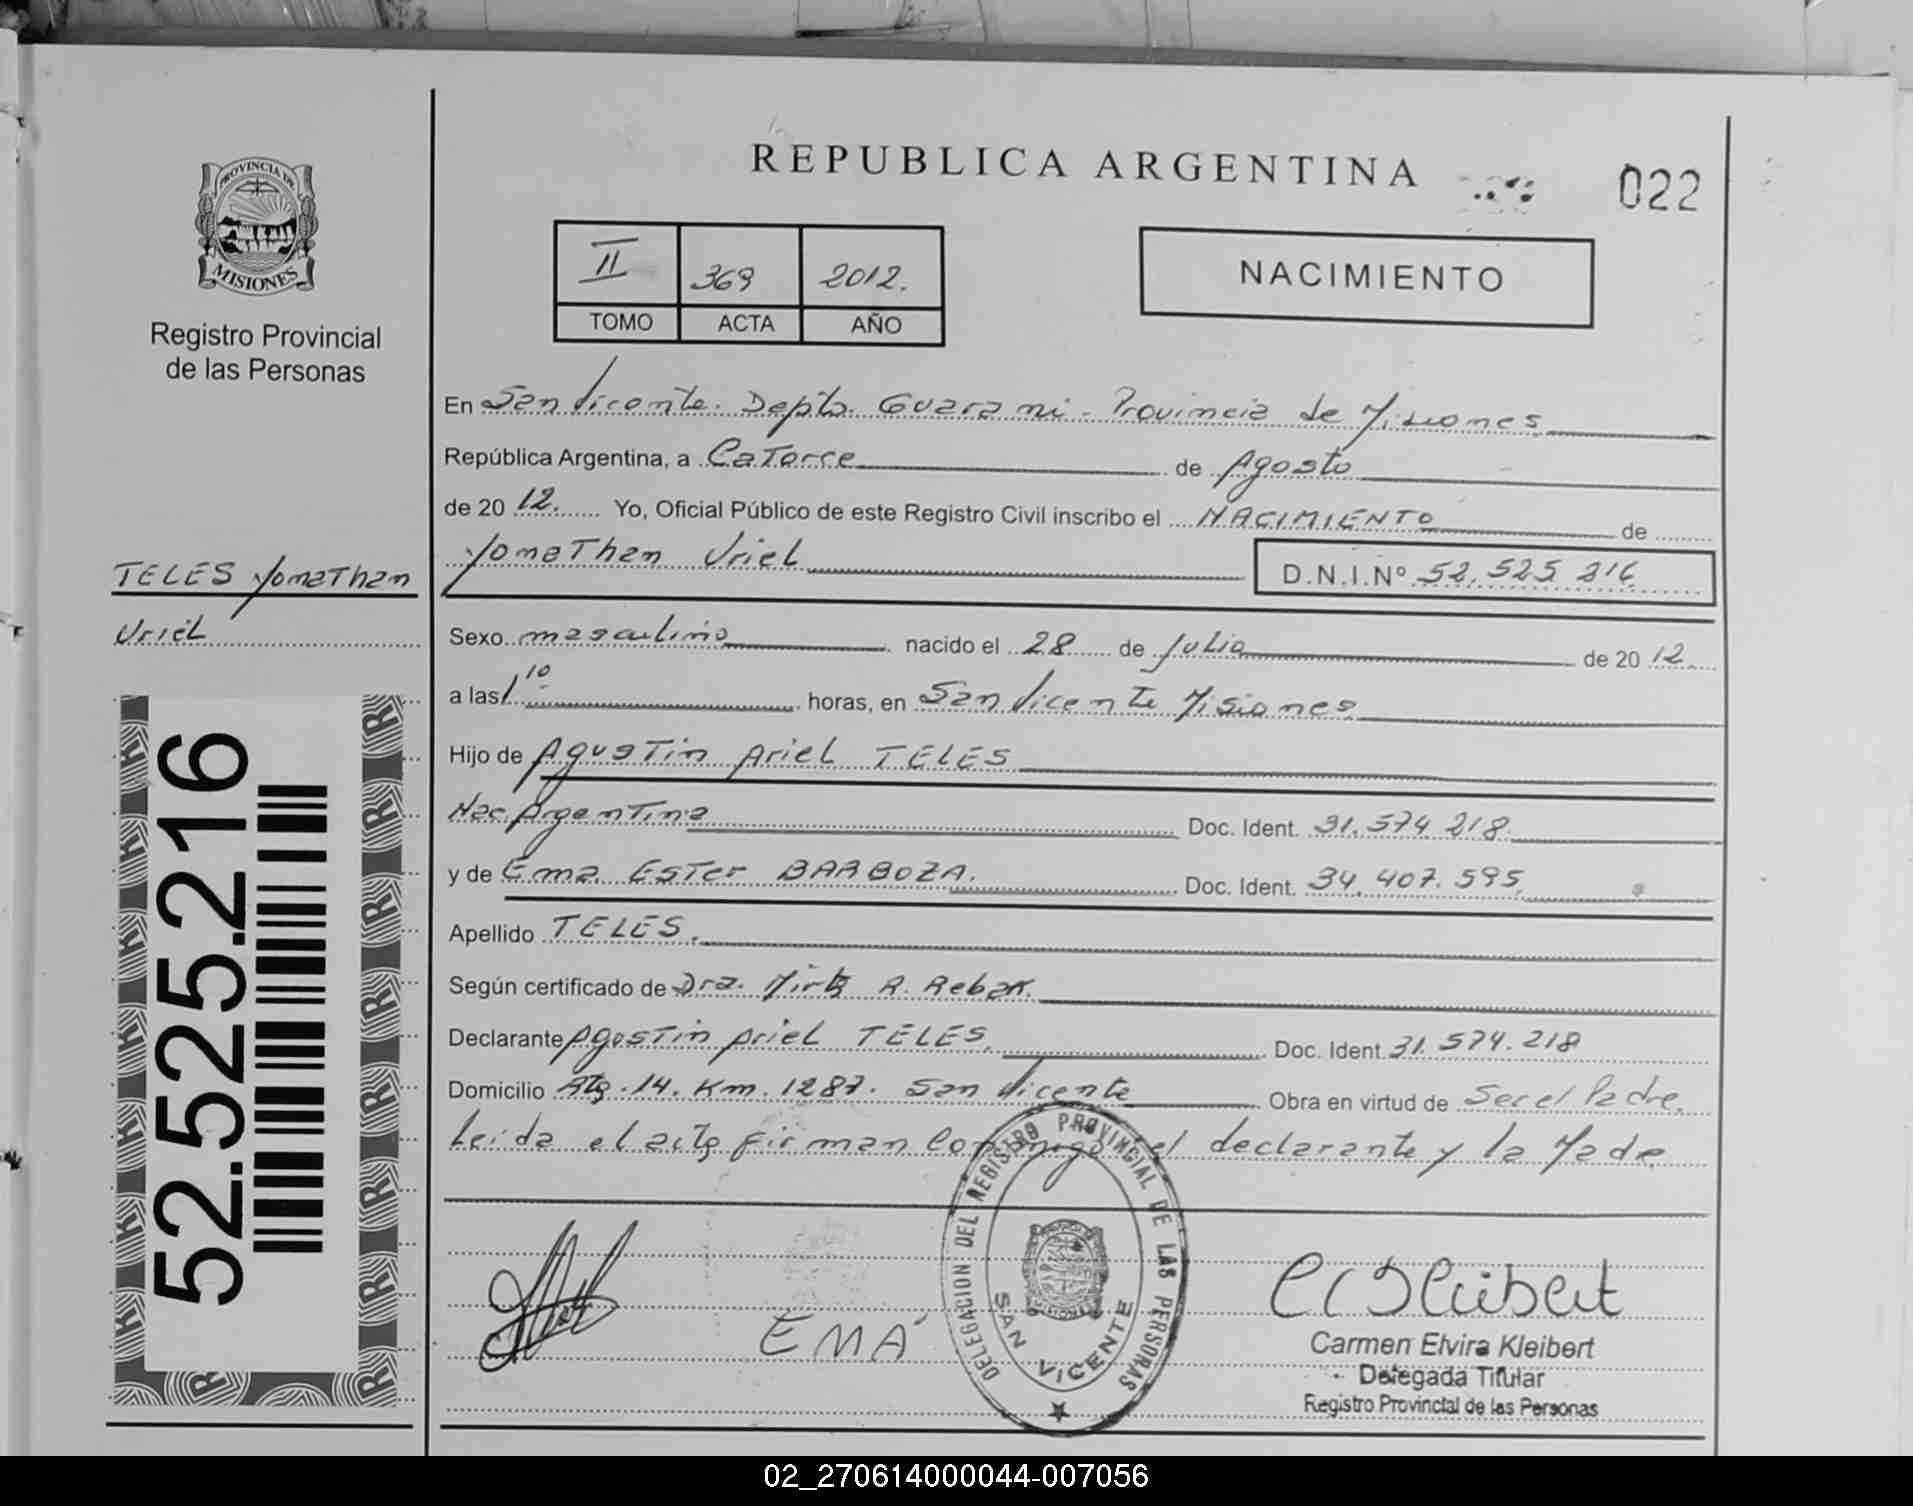 PROVINCIA DE
MISIONES
Registro Provincial
de las Personas
TELES Yonathan
Uriel
52.525.216
REPUBLICA ARGENTINA
022
II 369 2012.
TOMO ACTA AÑO
NACIMIENTO
En San Vicente. Depto. Guarani. Provincia de Misiones
República Argentina, a Catorce de Agosto
de 2012. Yo, Oficial Público de este Registro Civil inscribo el NACIMIENTO de
Yonathan Uriel D.N.I.Nº 52.525 216
Sexo masculino nacido el 28 de Julio de 2012
a las 1 10 horas, en San Vicente Misiones
Hijo de Agustin Ariel TELES
Nac Argentina Doc. Ident. 31.574 218
y de Ema Ester BARBOZA. Doc. Ident. 34.407.595
Apellido TELES.
Según certificado de Dra. Mirta R. Rebak.
Declarante Agostin Ariel TELES Doc. Ident. 31.574.218
Domicilio Rta. 14. Km. 1287. San Vicente Obra en virtud de Ser el Padre.
Leida el acta firman conmigo el declarante y la Madre
DELEGACION DEL REGISTRO PROVINCIAL DE LAS PERSONAS
SAN VICENTE
EMA
Carmen Elvira Kleibert
Delegada Titular
Registro Provincial de las Personas
02_270614000044-007056